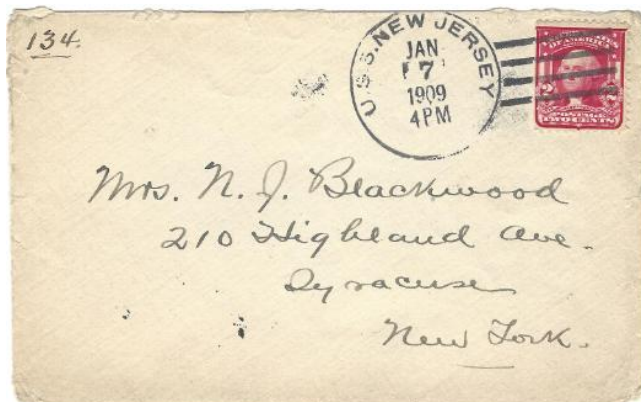 134.
U.S.S. NEW JERSEY
JAN
7
1909
4 PM
2
POSTAGE
TWO CENTS
Mrs. N. J. Blackwood
210 Highland Ave.
Syracuse
New York.